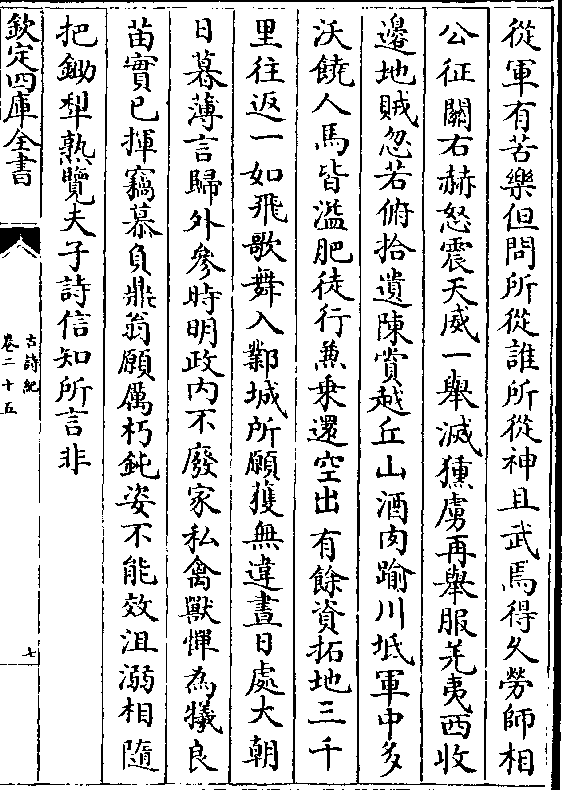 從軍有苦樂但問所從誰所從神且武焉得久勞師相
公征關右赫怒震天威一舉滅獯虜再舉服羌夷西收
邊地賊忽若俯拾遺陳賞越丘山酒肉踰川坻軍中多
沃饒人馬皆溢肥徒行兼乗還空出有餘資拓地三千
里往返一如飛歌舞入鄴城所願獲無違晝日處大朝
日暮薄言歸外參時明政内不廢家私禽獸憚為犧良
苗實已揮竊慕負鼎翁願厲朽鈍姿不能效沮溺相隨
把鋤犁熟覽夫子詩信知所言非
欽定四庫全書
古詩紀
卷二十五
七